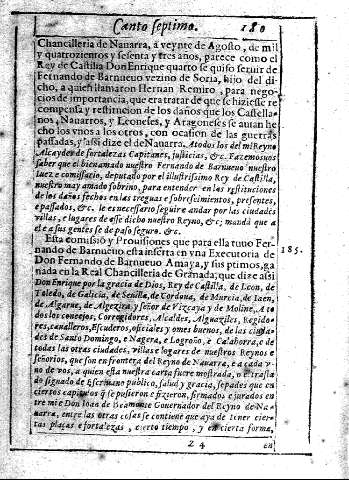 Canto septimo. 180
Chancilleria de Nauarra, a veynte de Agosto, de mil
y quatrozientos y sesenta y tres años, parece como el
Rey de Castilla Don Enrique quarto se quiso seruir de
Fernando de Barnueuo vezino de Soria, hijo del di-
cho, a quien llamaron Hernan Remiro, para nego-
cios de importancia, que era tratar de que se hiziesse re
compensa y restitucion de los daños que los Castella-
nos, Nauarros, y Leoneses, y Aragoneses se auian he
cho los vnos a los otros, con ocasion de las guerras
passadas, y assi dize el de Nauarra. A todos los del mi Reyno
Alcaydes de fortalezas Capitanes, justicias, &c. Fazemos uos
saber que el bienamado nuestro Fernando de Barnueuo nuestro
luez e comissario, deputado por el illustrissimo Rey de Castilla,
nuestro muy amado sobrino, para entender en las restituciones
de los daños fechos en las treguas e sobrescimientos, presentes,
e passados, &c. le es necessario seguir e andar por las ciudades
villas, e lugares de esse dicho nuestro Reyno, &c; manda que a
el e a sus gentes se de passo seguro. &c.
Esta comissió y Prouisiones que para ella tuuo Fer-
nando de Barnueuo esta inserta en vna Executoria de 185.
Don Fernando de Barnueuo Amaya, y sus primos, ga
nada en la Real Chancilleria de Granada, que dize assi
Don Enrique por la gracia de Dios, Rey de Castilla, de Leon, de
Toledo, de Galicia, de Seuilla, de Cordoua, de Murcia, de Iaen,
de Algarue, de Algezira, y señor de Vizcaya y de Molina, A to
dos los concejos, Corregidores, Alcaldes, Alguaziles, Regido-
res, caualleros, Escuderos, oficiales y omes buenos, de las ciuda
des de Santo Domingo, e Nagera, e Logroño, e Calahorra, e de
todas las otras ciudades, villas e lugares de nuestros Reynos e
señorios, que son en frontera del Reyno de Nauarra, e a cada v
no de vos, a quien esta nuestra carta fuere mostrada, o el trasla
do signado de escriuano publico, salud y gracia, sepades que en
ciertos capitulos q̃ se pusieron e fizieron, firmados e jurados en
tre mi e Don Ioan de Beamonte Gouernador del Reyno de Na-
uarra, entre las otras cosas se contiene que aya de tener cier-
tas plaças e fortalezas, cierto tiempo, y en cierta forma,
Z 4 en